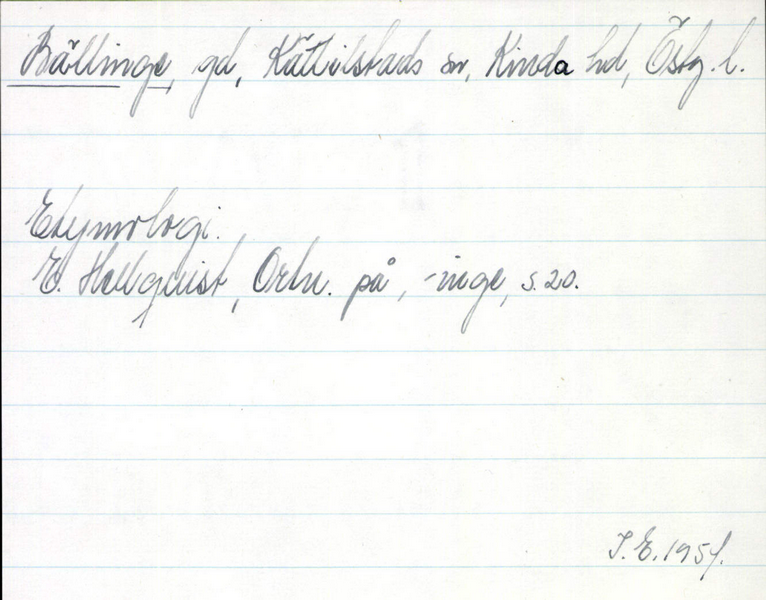 Bällinge, gd, Kättilstads sn, Kinda hd, Östg. l.
Etymologi.
E. Hellquist, Ortn. på, -inge, s. 20.
I. E. 1954.